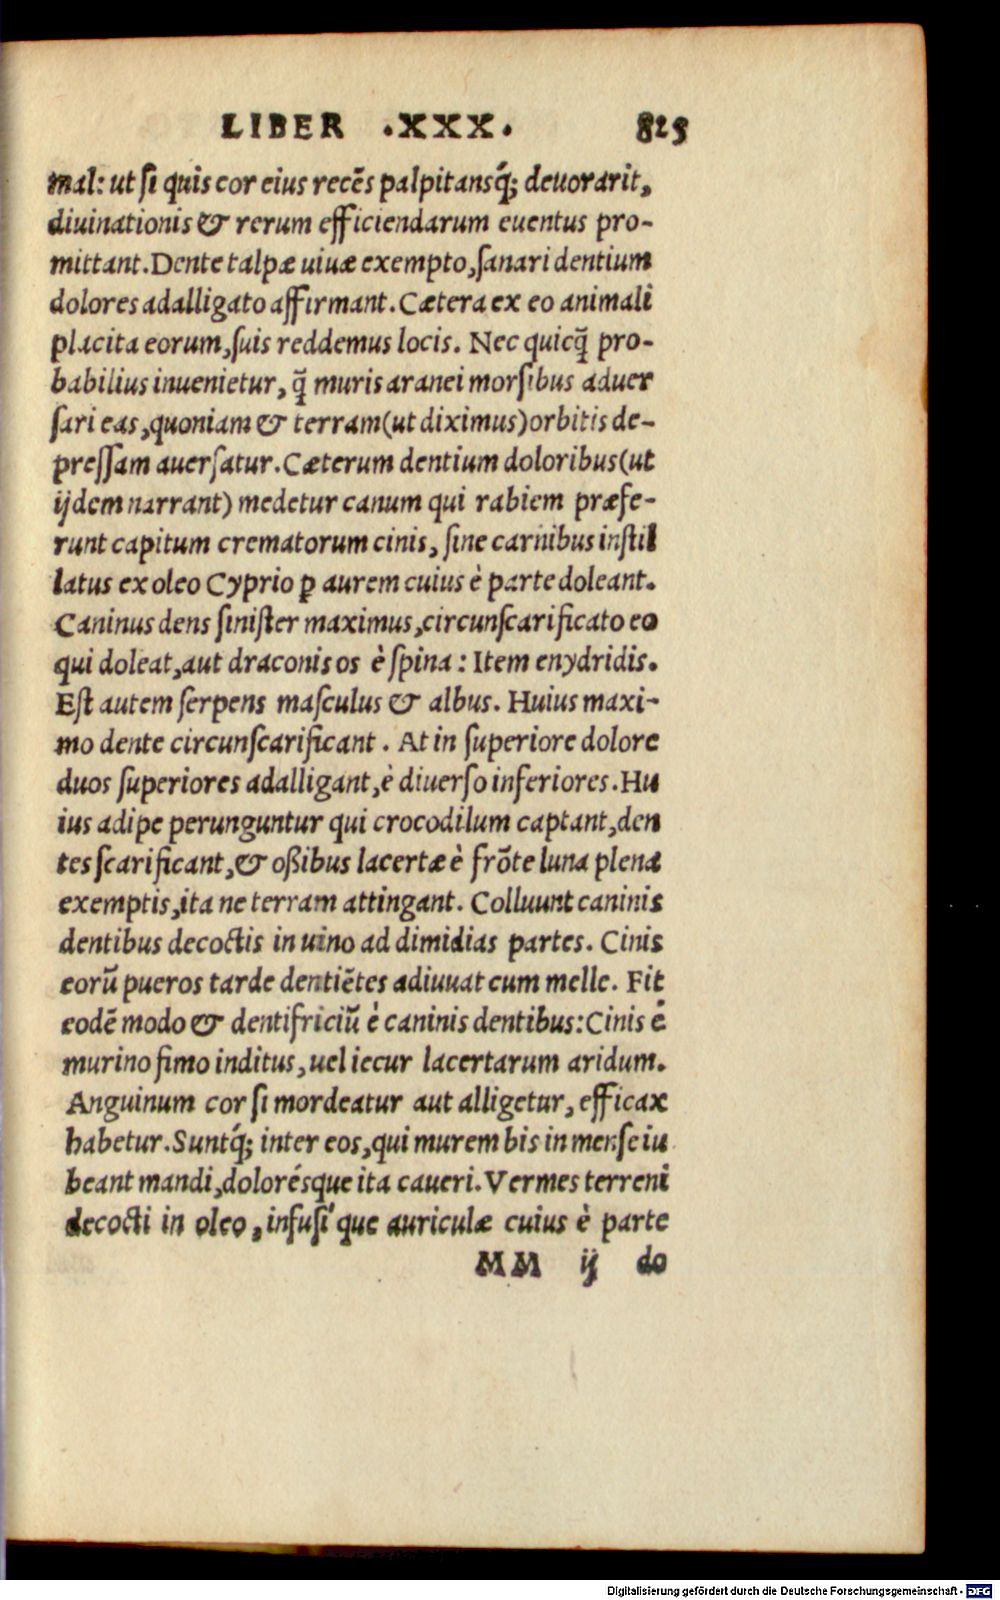 LIBER .XXX. 825
mal: ut ſi quis cor eius recẽs palpitansq́; deuorarit,
diuinationis & rerum efficiendarum euentus pro-
mittant. Dente talpæ uiuæ exempto, ſanari dentium
dolores adalligato affirmant. Cætera ex eo animali
placita eorum, ſuis reddemus locis. Nec quicq̃ pro-
babilius inuenietur, q̃ muris aranei morſibus aduer
ſari eas, quoniam & terram (ut diximus) orbitis de-
preſſam auerſatur. Cæterum dentium doloribus (ut
ijdem narrant) medetur canum qui rabiem præfe-
runt capitum crematorum cinis, ſine carnibus inſtil
latus ex oleo Cyprio ꝑ aurem cuius è parte doleant.
Caninus dens ſiniſter maximus, circunſcarificato eo
qui doleat, aut draconis os è ſpina: Item enydridis.
Eſt autem ſerpens maſculus & albus. Huius maxi-
mo dente circunſcarificant. At in ſuperiore dolore
duos ſuperiores adalligant, è diuerſo inferiores. Hu
ius adipe perunguntur qui crocodilum captant, den
tes ſcarificant, & oßibus lacertæ è frõte luna plena
exemptis, ita ne terram attingant. Colluunt caninis
dentibus decoctis in uino ad dimidias partes. Cinis
eorũ pueros tarde dentiẽtes adiuuat cum melle. Fit
eodẽ modo & dentifriciũ è caninis dentibus: Cinis è
murino fimo inditus, uel iecur lacertarum aridum.
Anguinum cor ſi mordeatur aut alligetur, efficax
habetur. Suntq́; inter eos, qui murem bis in menſe iu
beant mandi, dolorésque ita caueri. Vermes terreni
decocti in oleo, infuſi'que auriculæ cuius è parte
MM ij do
Digitalisierung gefördert durch die Deutsche Forschungsgemeinschaft - DFG